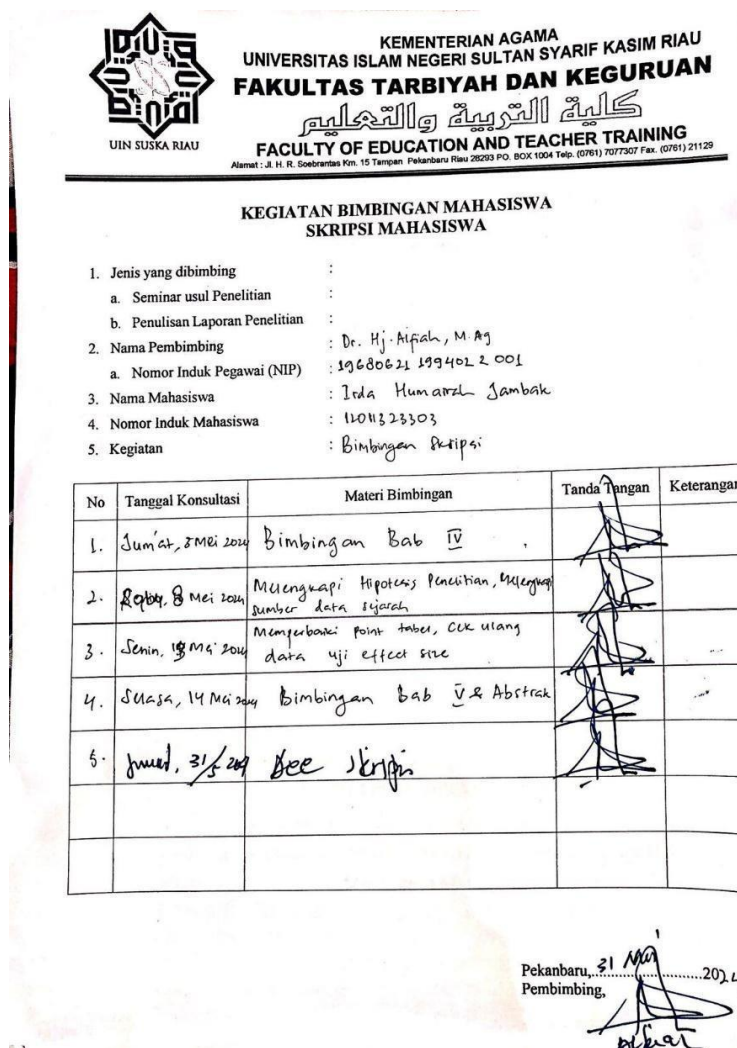 UIN SUSKA RIAU
KEMENTERIAN AGAMA
UNIVERSITAS ISLAM NEGERI SULTAN SYARIF KASIM RIAU
FAKULTAS TARBIYAH DAN KEGURUAN
كلية التربية والتعليم
FACULTY OF EDUCATION AND TEACHER TRAINING
Alamat : Jl. H. R. Soebrantas Km. 15 Tampan Pekanbaru Riau 28293 PO. BOX 1004 Telp. (0761) 7077307 Fax. (0761) 21129
KEGIATAN BIMBINGAN MAHASISWA
SKRIPSI MAHASISWA
1. Jenis yang dibimbing :
a. Seminar usul Penelitian :
b. Penulisan Laporan Penelitian :
2. Nama Pembimbing : Dr. Hj. Alfiah, M.Ag
a. Nomor Induk Pegawai (NIP) : 19680621 199402 2 001
3. Nama Mahasiswa : Irda Humairah Jambak
4. Nomor Induk Mahasiswa : 12011323303
5. Kegiatan : Bimbingan Skripsi
No Tanggal Konsultasi Materi Bimbingan Tanda Tangan Keterangan
1. Jum'at, 3 Mei 2024 Bimbingan Bab IV
2. 8 Mei 2024 Melengkapi Hipotesis Penelitian, Melengkapi
sumber data sejarah
3. Senin, Mei 2024 Memperbaiki point tabel, cek ulang
data uji effect size
4. Selasa, 14 Mei 2024 Bimbingan Bab V & Abstrak
5. Jumat, 31/5 2024 Acc Skripsi
Pekanbaru, 31 Mei 2024
Pembimbing,
Alfiah